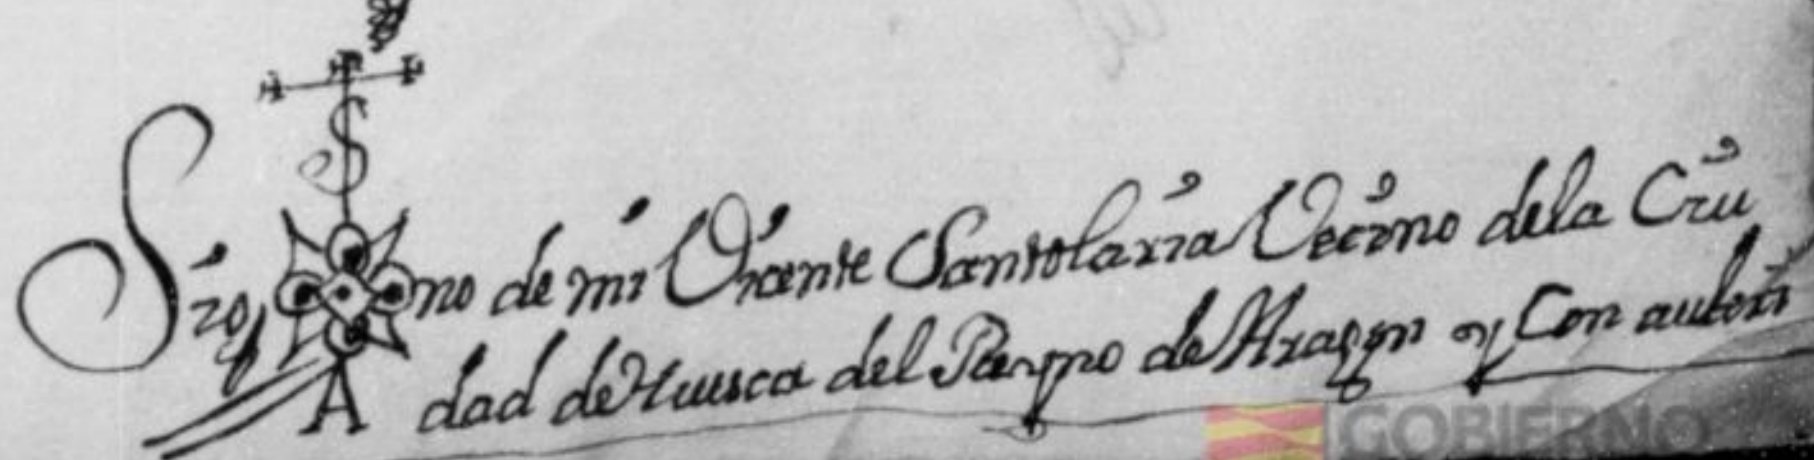 Sig no de mi Vicente Santolaria Vecino dela Ciu
dad de Huesca del Reyno de Aragon y Con autori
S
A
GOBIERNO